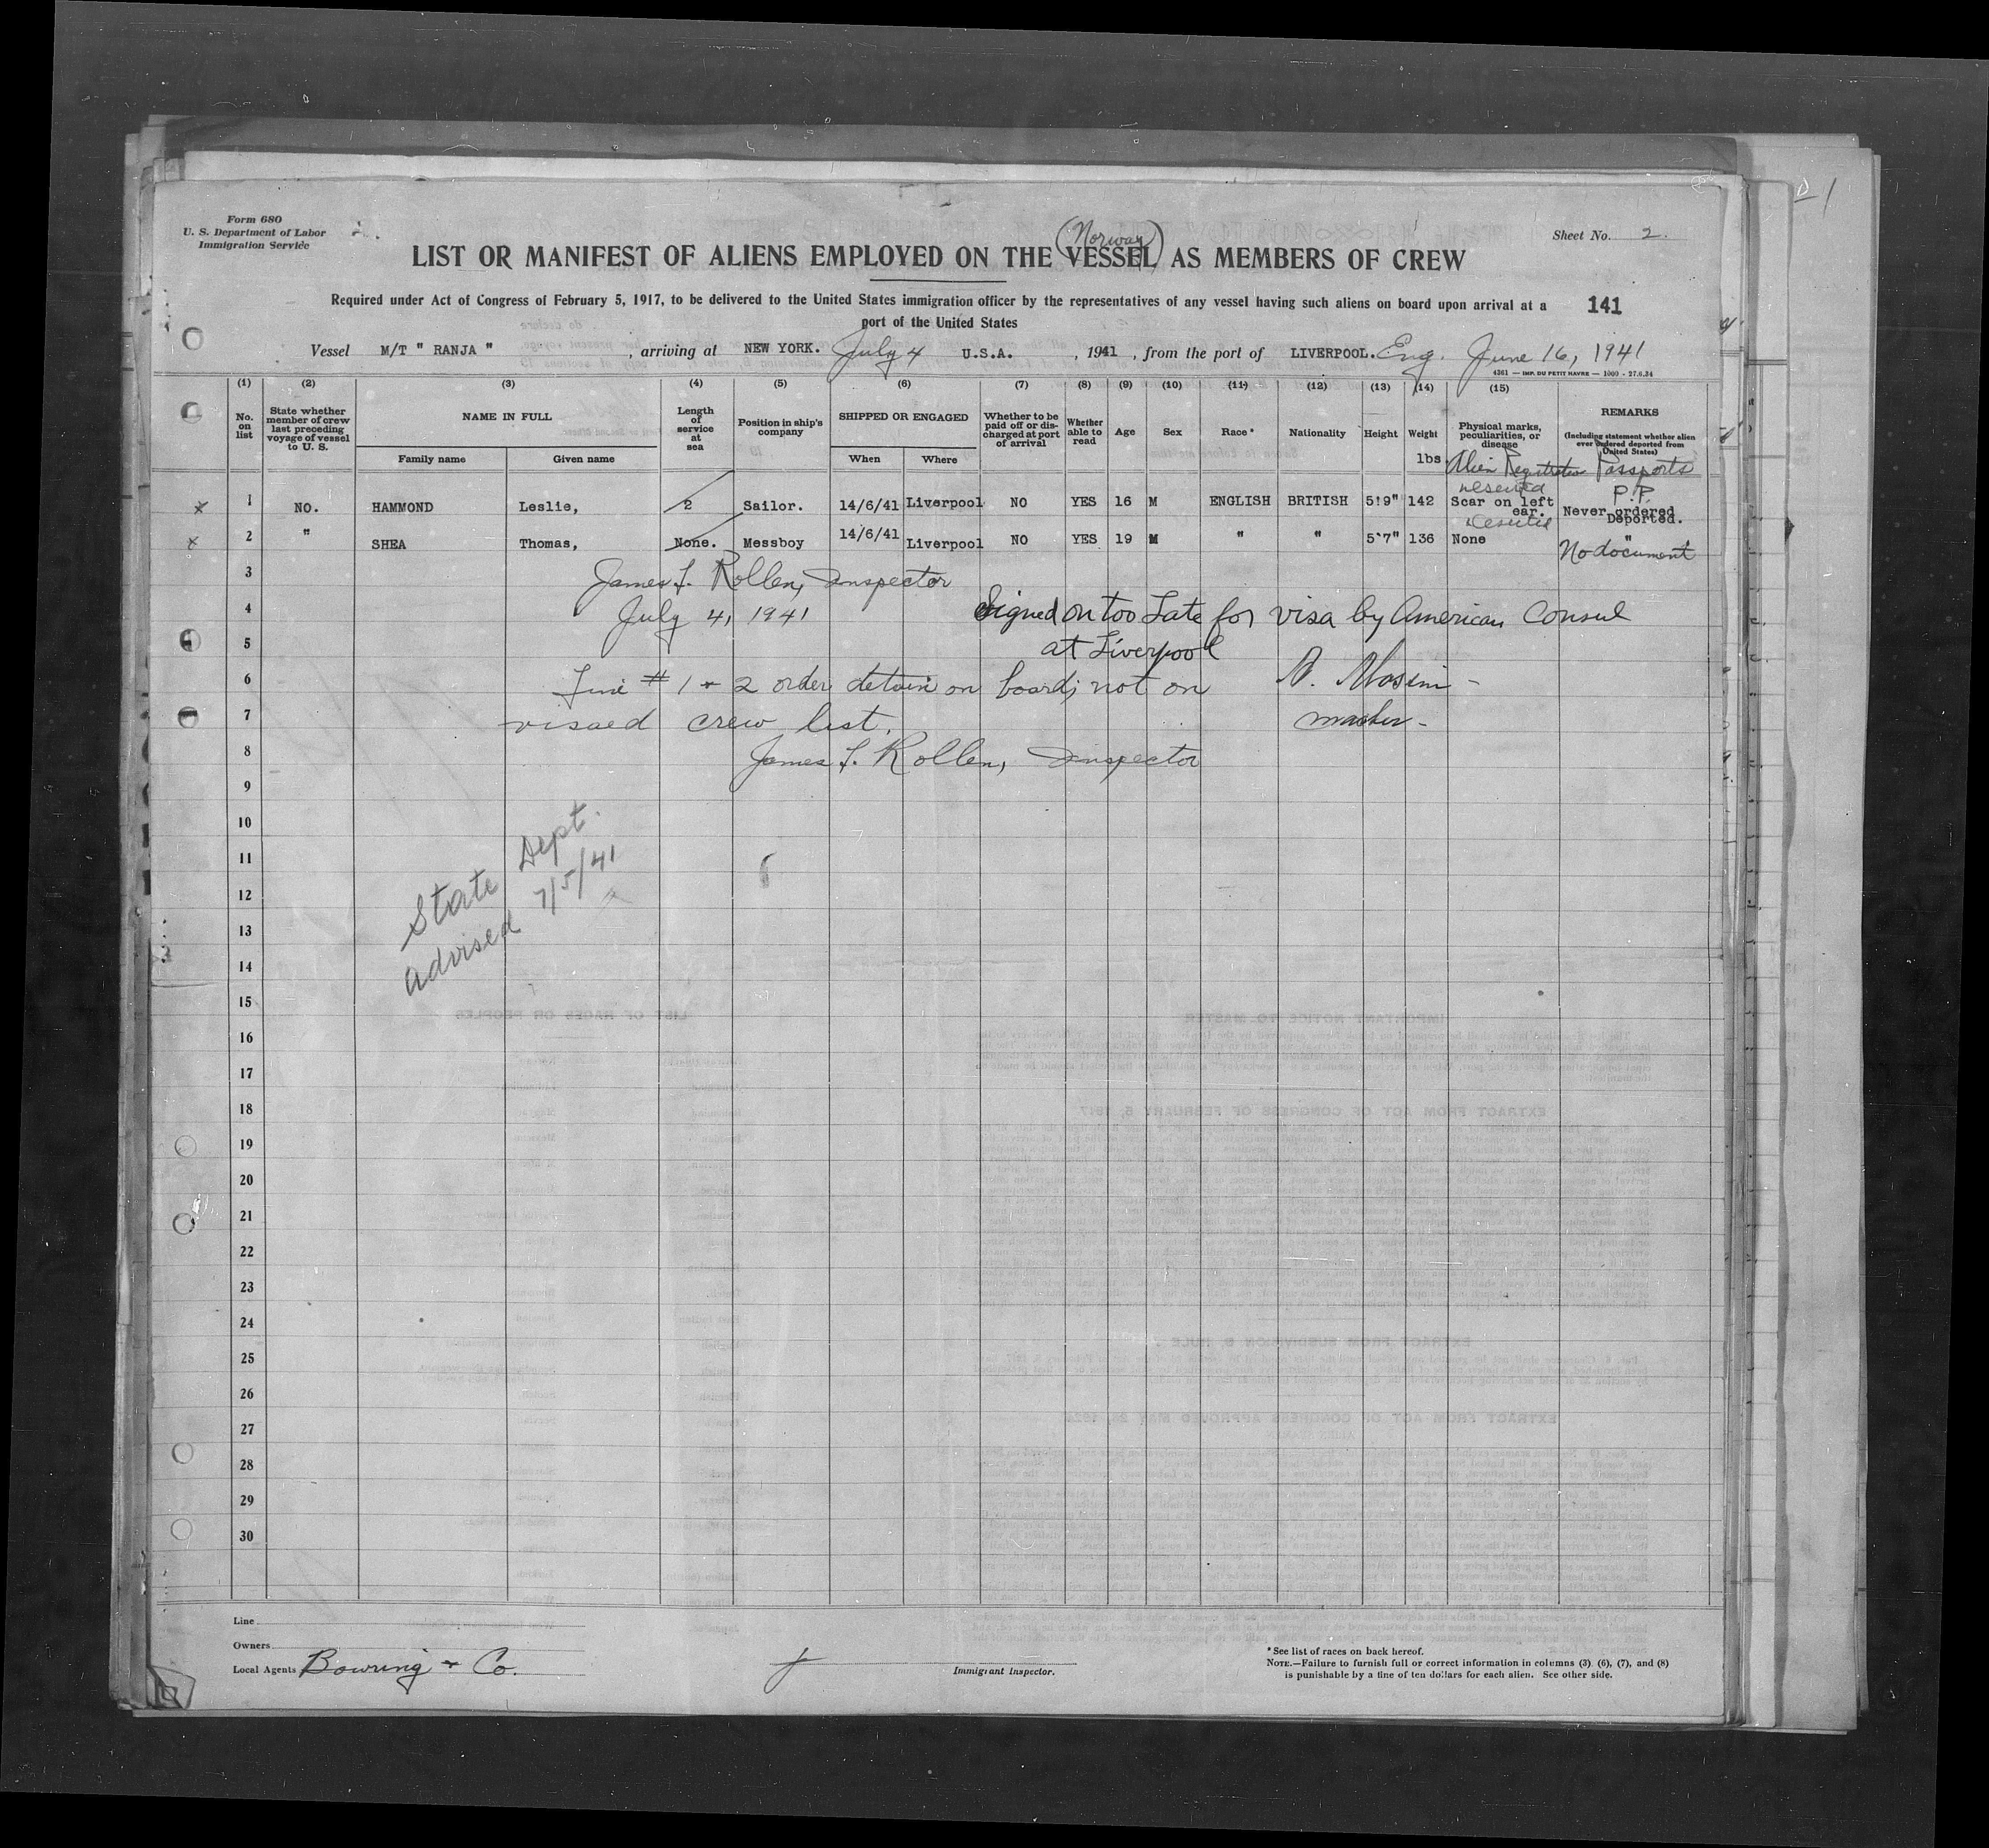 Form 680
U. S. Department of Labor
Immigration Service
Sheet No. 2.
(Norway)
LIST OR MANIFEST OF ALIENS EMPLOYED ON THE VESSEL AS MEMBERS OF CREW
Required under Act of Congress of February 5, 1917, to be delivered to the United States immigration officer by the representatives of any vessel having such aliens on board upon arrival at a
port of the United States
141
Vessel M/T " RANJA " , arriving at NEW YORK. July 4 U.S.A. , 1941 , from the port of LIVERPOOL. Eng. June 16, 1941
4361 — IMP. DU PETIT HAVRE — 1000 - 27.6.34
(1) (2) (3) (4) (5) (6) (7) (8) (9) (10) (11) (12) (13) (14) (15)
No. on list
State whether member of crew last preceding voyage of vessel to U. S.
NAME IN FULL
Family name Given name
Length of service at sea
Position in ship's company
SHIPPED OR ENGAGED
When Where
Whether to be paid off or discharged at port of arrival
Whether able to read
Age
Sex
Race*
Nationality
Height
Weight
lbs
Physical marks, peculiarities, or disease
REMARKS
(Including statement whether alien ever ordered deported from United States)
Alien Registration Passports
1 NO. HAMMOND Leslie, 2 Sailor. 14/6/41 Liverpool NO YES 16 M ENGLISH BRITISH 5!9" 142 Scar on left ear. P.P. Never ordered Deported.
2 " SHEA Thomas, None. Messboy 14/6/41 Liverpool NO YES 19 M " " 5'7" 136 None "
No document
3
James F. Rollen, Inspector
4
July 4, 1941
Signed on too Late for visa by American Consul
5
at Liverpool
6
Line # 1 + 2 order detain on board; not on
7
visaed crew list.
master -
8
James F. Rollen, Inspector
9
10
11
12
13
14
State Dept.
advised 7/5/41
15
16
17
18
19
20
21
22
23
24
25
26
27
28
29
30
Line
Owners
Local Agents Bowring & Co.
Immigrant Inspector.
* See list of races on back hereof.
NOTE.—Failure to furnish full or correct information in columns (3) (6), (7), and (8)
is punishable by a fine of ten dollars for each alien. See other side.